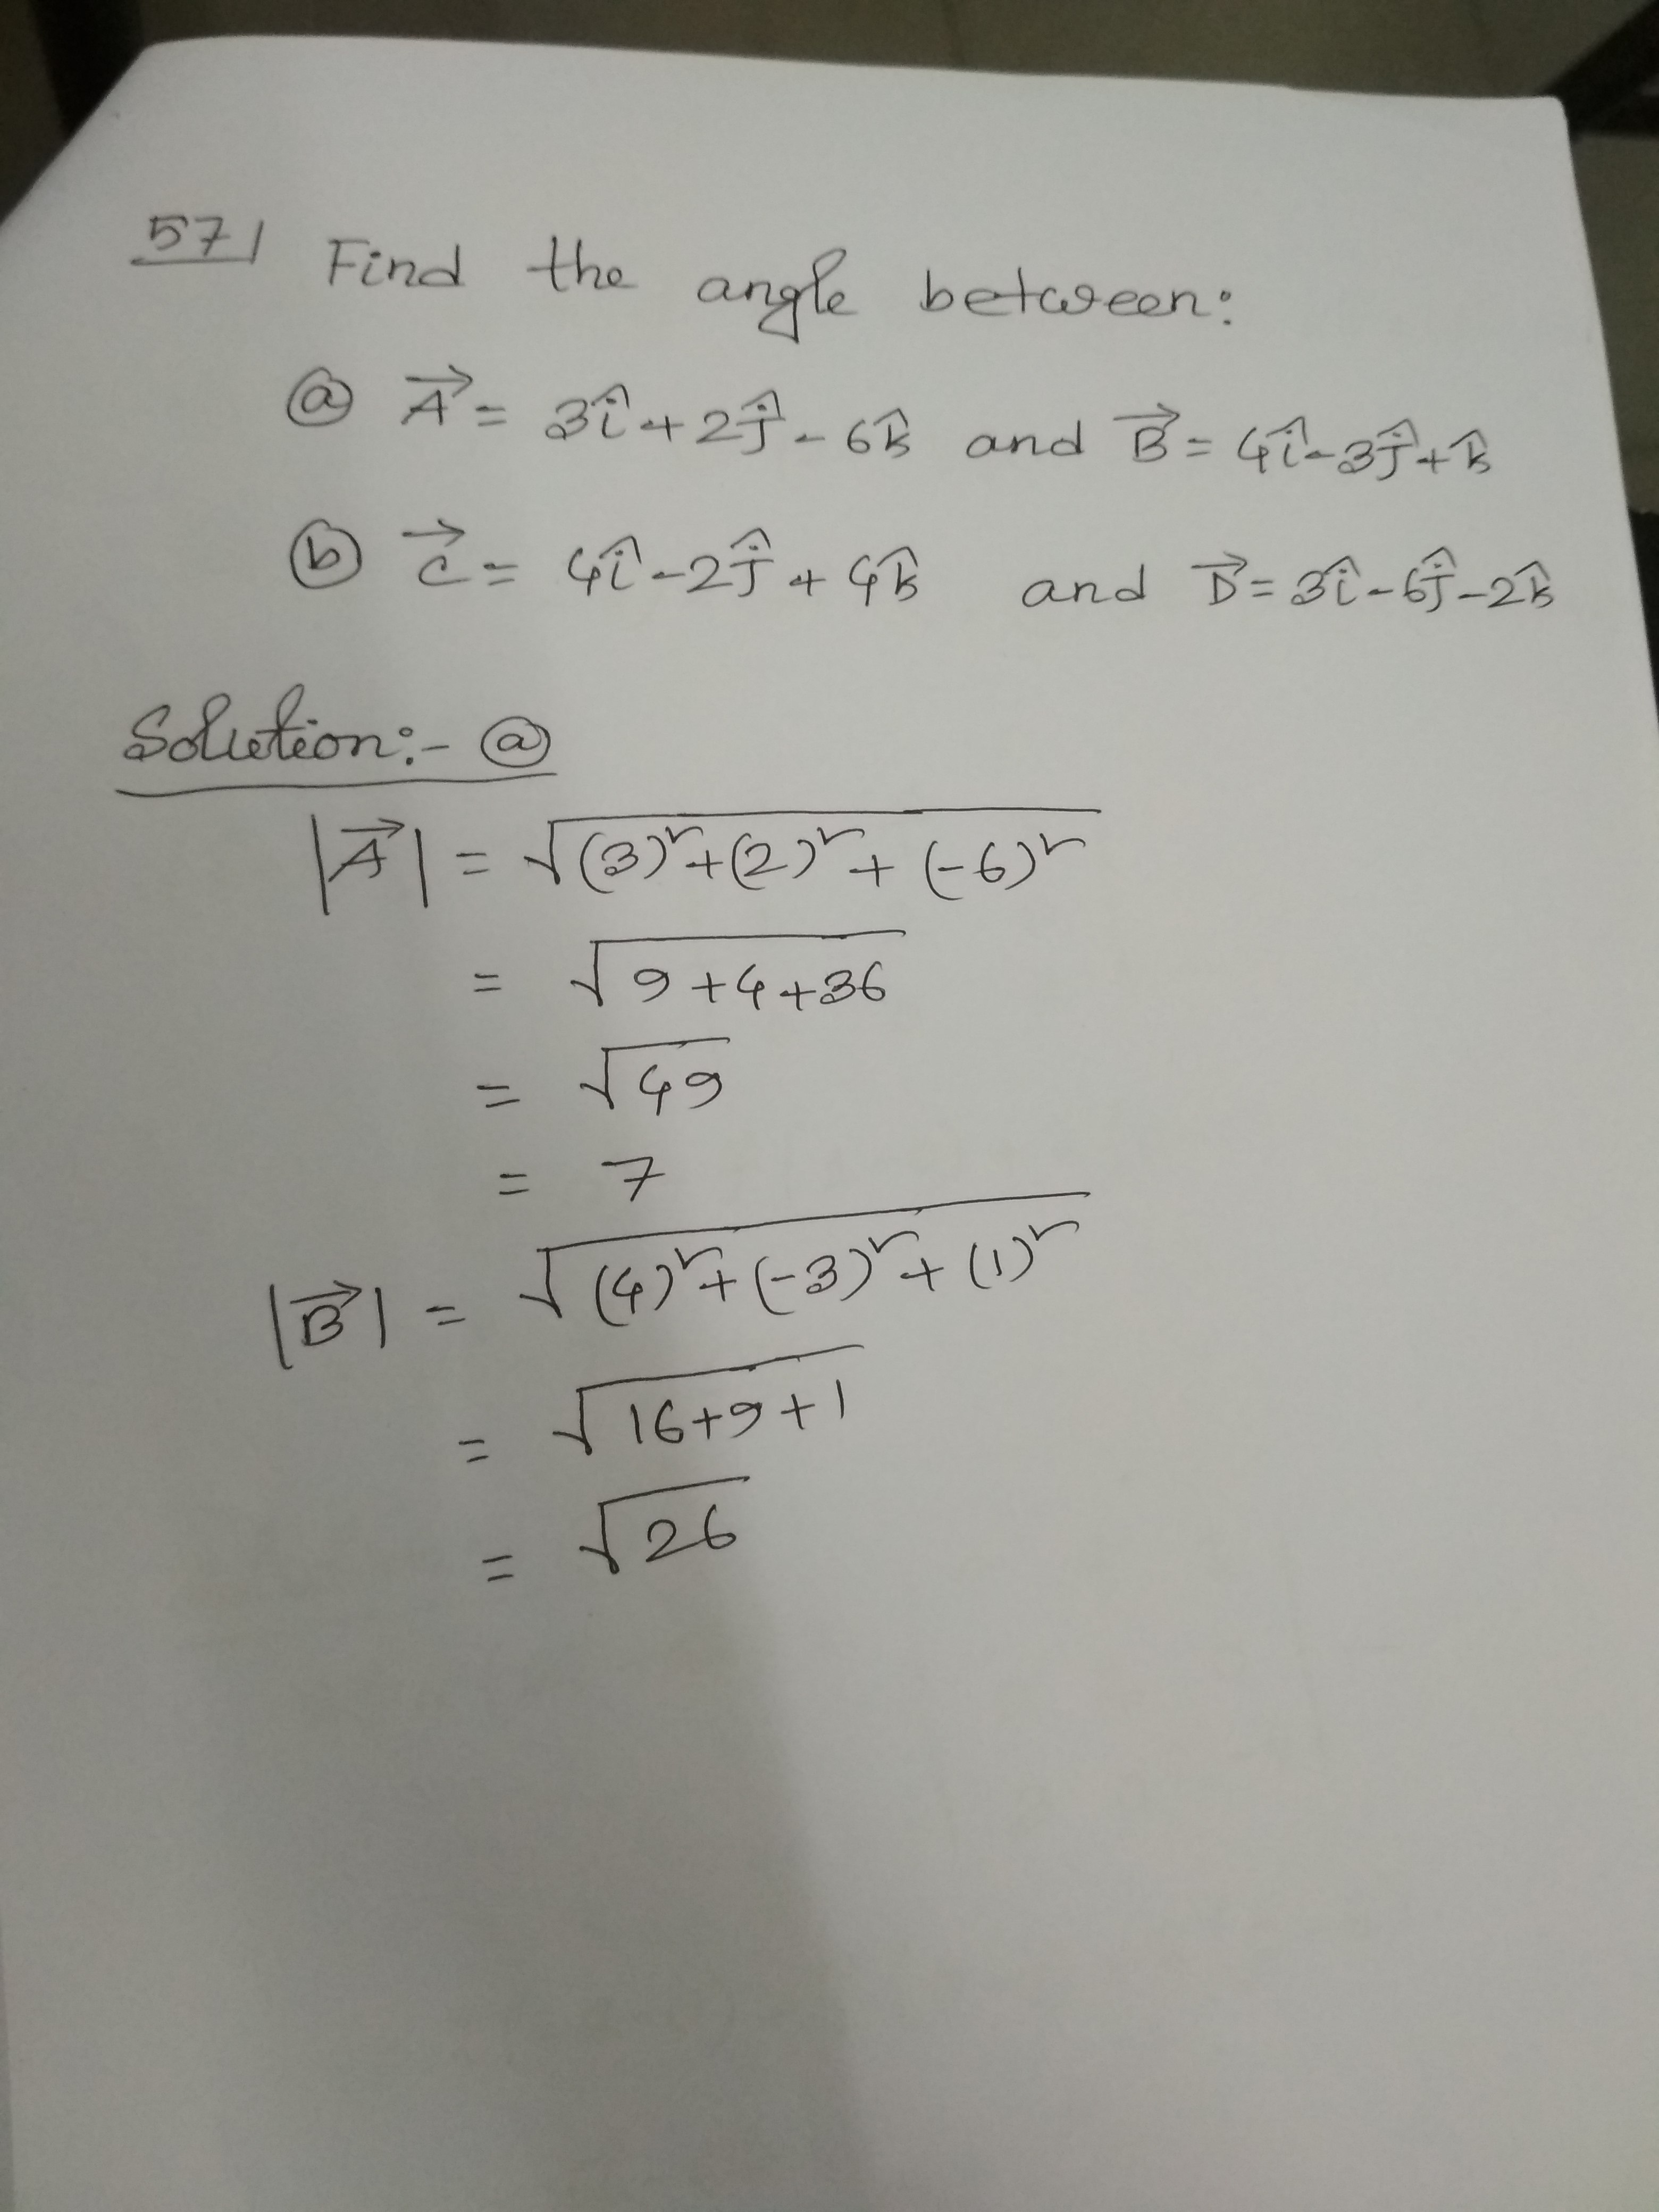 57/ Find the angle between:
ⓐ A⃗ = 3î + 2ĵ - 6k̂ and B⃗ = 4î - 3ĵ + k̂
ⓑ C⃗ = 4î - 2ĵ + 4k̂ and D⃗ = 3î - 6ĵ - 2k̂
Solution:- ⓐ
|A⃗| = √((3)² + (2)² + (-6)²)
= √(9 + 4 + 36)
= √49
= 7
|B⃗| = √((4)² + (-3)² + (1)²)
= √(16 + 9 + 1)
= √26